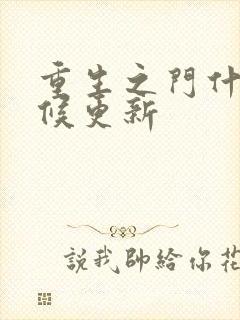 重生之門什
候更新
說我帥給你花